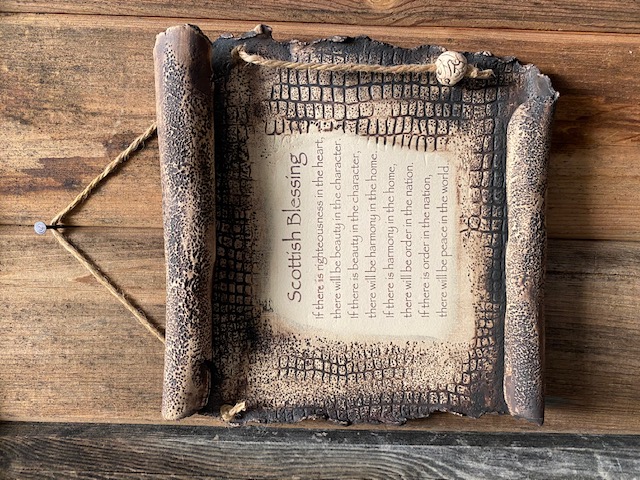 Scottish Blessing
If there is righteousness in the heart,
there will be beauty in the character.
If there is beauty in the character,
there will be harmony in the home.
If there is harmony in the home,
there will be order in the nation.
If there is order in the nation,
there will be peace in the world.